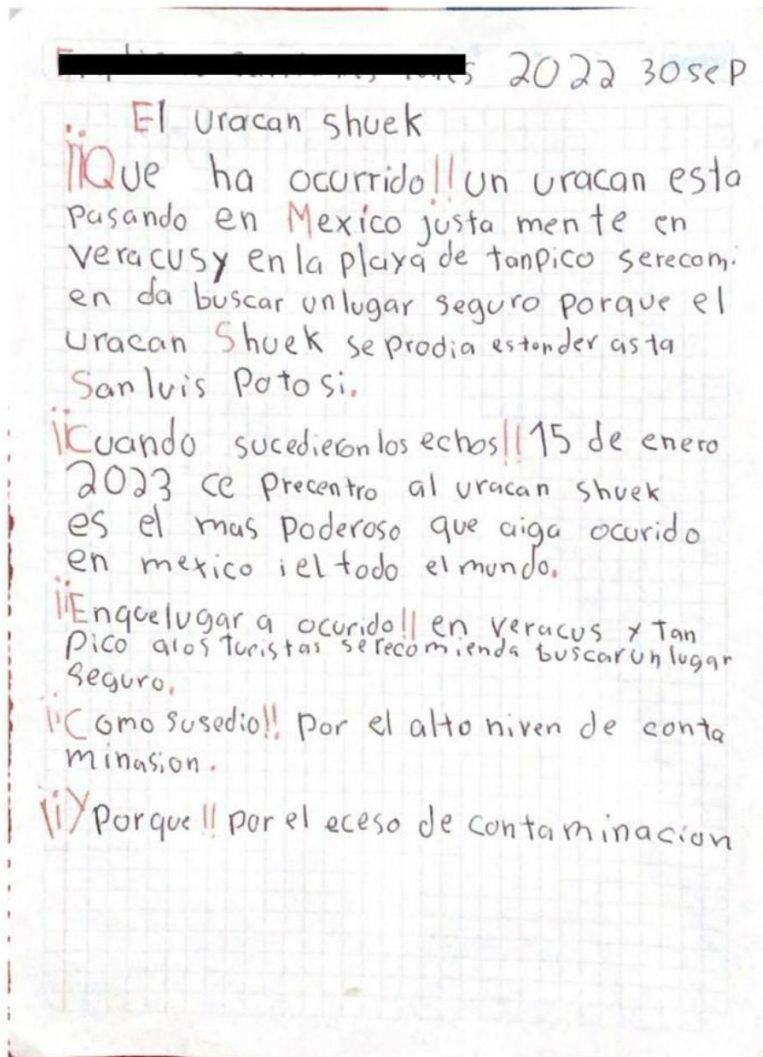 2022 30 sep
El uracan shuek
¡¡Que ha ocurrido!! un uracan esta
pasando en Mexíco justa mente en
veracus y en la playa de tanpico serecom.
en da buscar un lugar seguro porque el
uracan Shuek se prodia estender asta
San luis Potosi.
¡¡Cuando sucedieron los echos!! 15 de enero
2023 ce precentro al uracan shuek
es el mas poderoso que aiga ocurido
en mexico i el todo el mundo.
¡¡Enquelugar a ocurido!! en veracus y Tan
pico alos turistas se recomienda buscar un lugar
seguro.
¡¡Como susedio!! por el alto niven de conta
minasion.
¡¡Y porque!! por el eceso de contaminacion